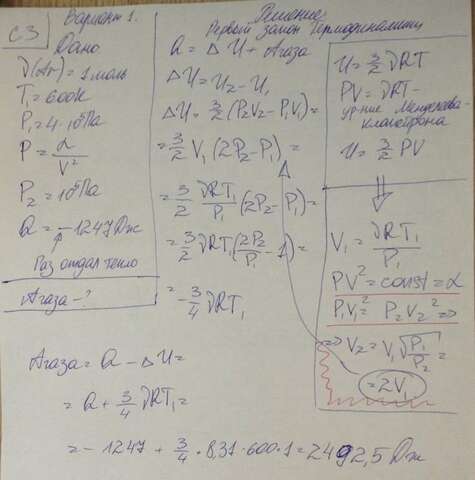 С3
Вариант 1.
Дано
ν(Ar) = 1 моль
T₁ = 600 К
P₁ = 4·10⁵ Па
P = α/V²
P₂ = 10⁵ Па
Q = −1247 Дж
Газ отдал тепло
Aгаза - ?
Решение
Первый закон Термодинамики
Q = ΔU + Aгаза
ΔU = U₂ − U₁
ΔU = 3/2 (P₂V₂ − P₁V₁) =
= 3/2 V₁ (2P₂ − P₁) =
= 3/2 νRT₁/P₁ (2P₂ − P₁) =
= 3/2 νRT₁ (2P₂/P₁ − 1) =
= −3/4 νRT₁
U = 3/2 νRT
PV = νRT −
ур-ние Менделеева-
Клапейрона
U = 3/2 PV
⇓
V₁ = νRT₁/P₁
PV² = const = α
P₁V₁² = P₂V₂² ⇒
⇒ V₂ = V₁ √(P₁/P₂) =
= 2V₁
Aгаза = Q − ΔU =
= Q + 3/4 νRT₁ =
= −1247 + 3/4 · 8,31 · 600 · 1 = 2492,5 Дж